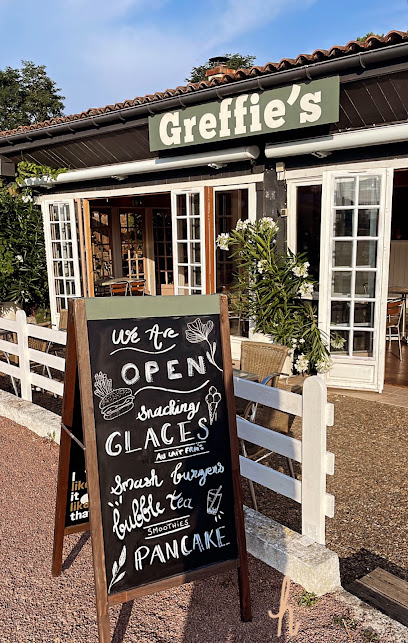 Greffie's
We Are
OPEN
Snacking
GLACES
AU LAIT FRAIS
Smash burgers
bubble Tea
SMOOTHIES
PANCAKE
like
it
like
tha